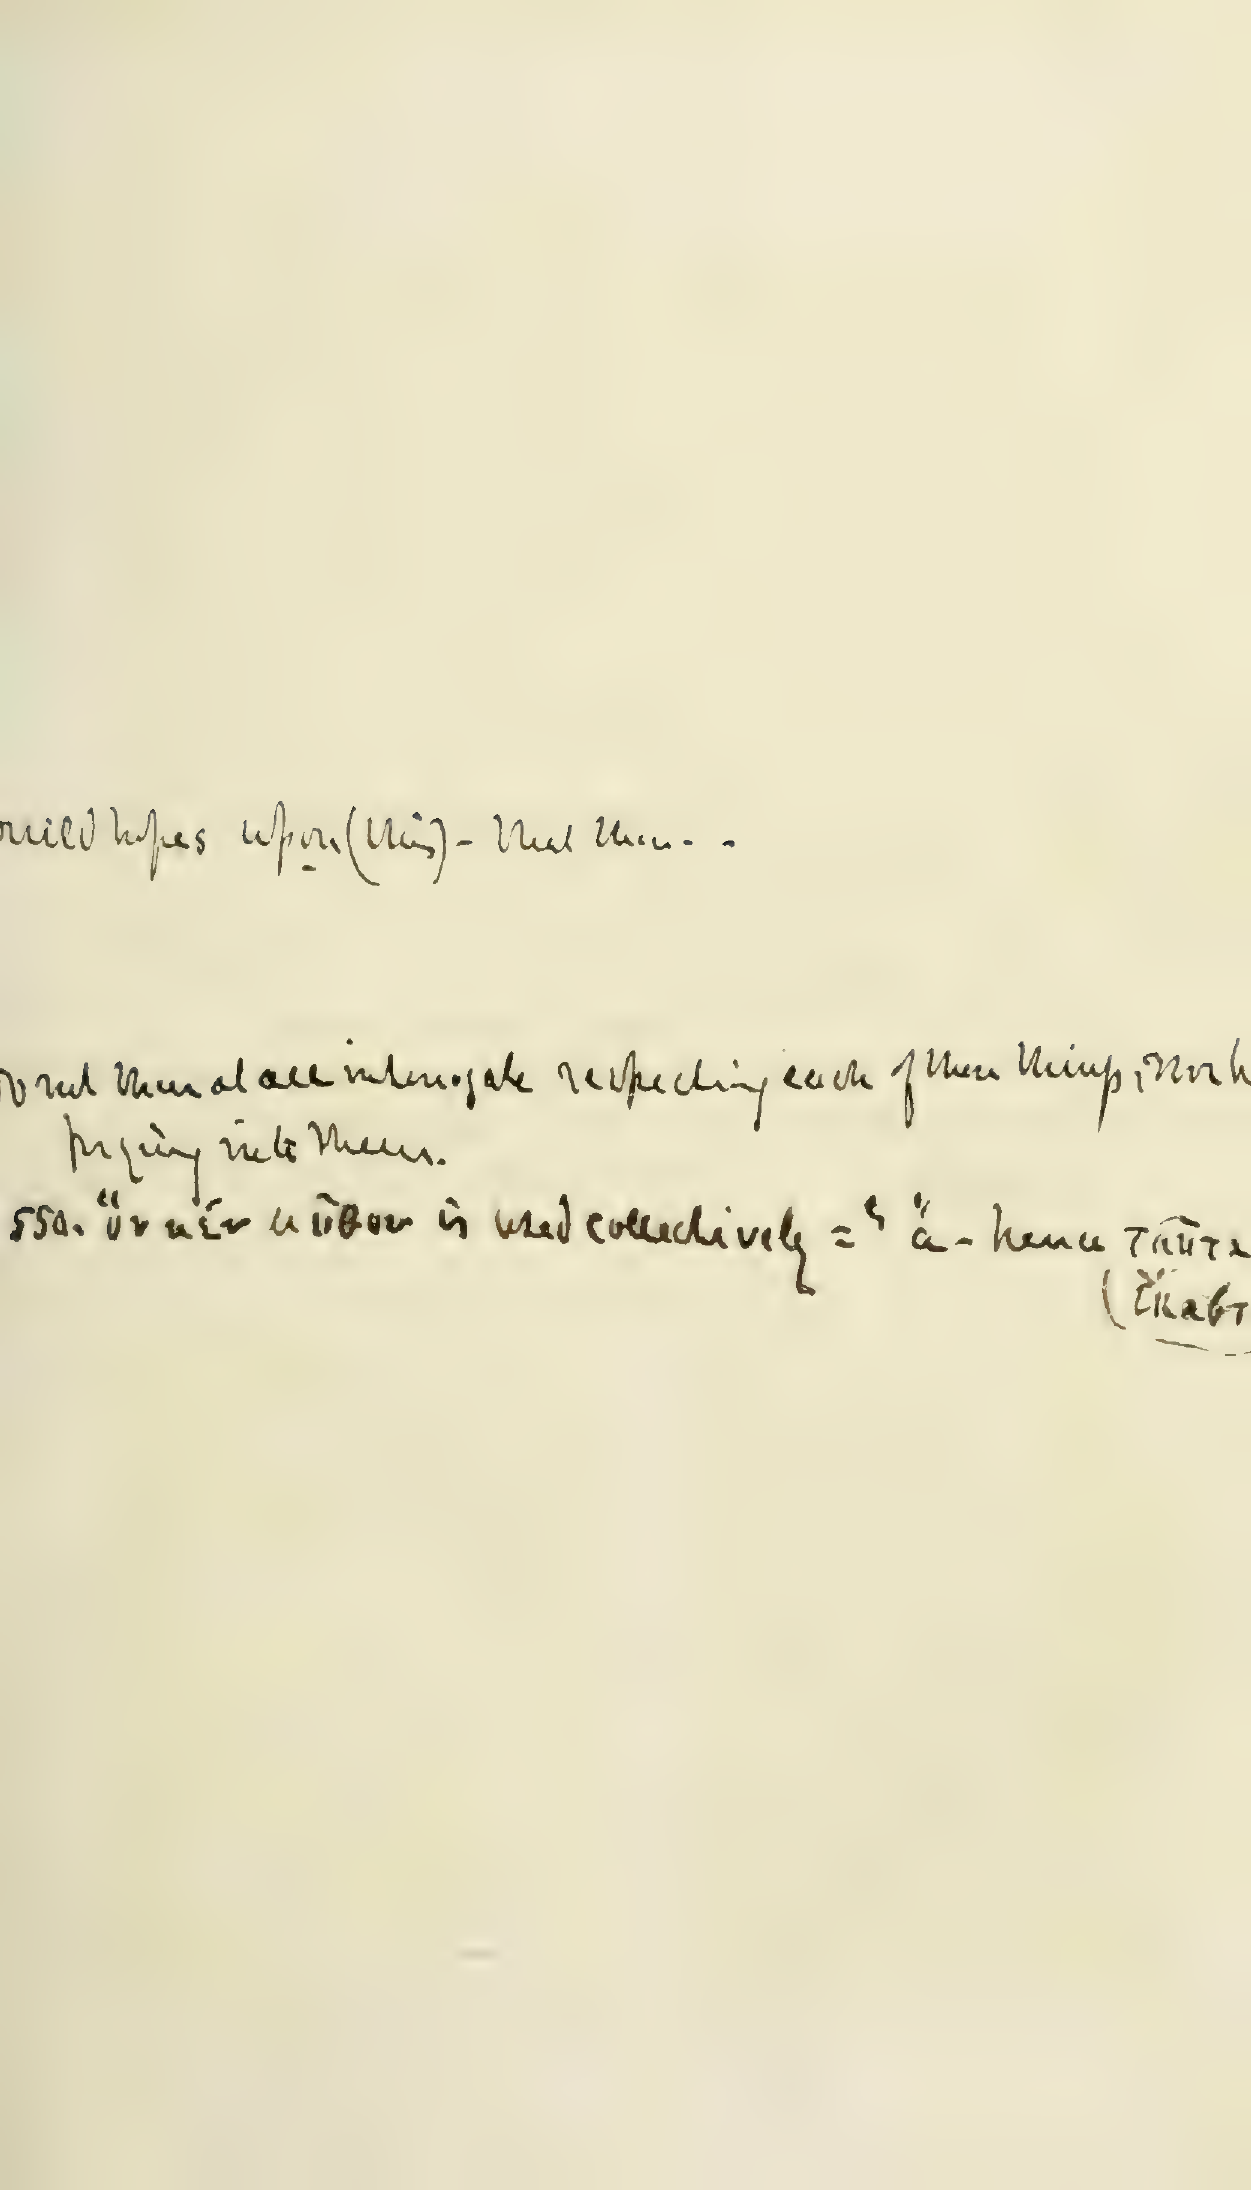 build hopes upon (this) - that thou - -
Do not thou at all interrogate respecting each of these things, nor
prying into them.
550. ὃν μὲν is used collectively = ἃ - hence ταῦτα
(ἕκαστ